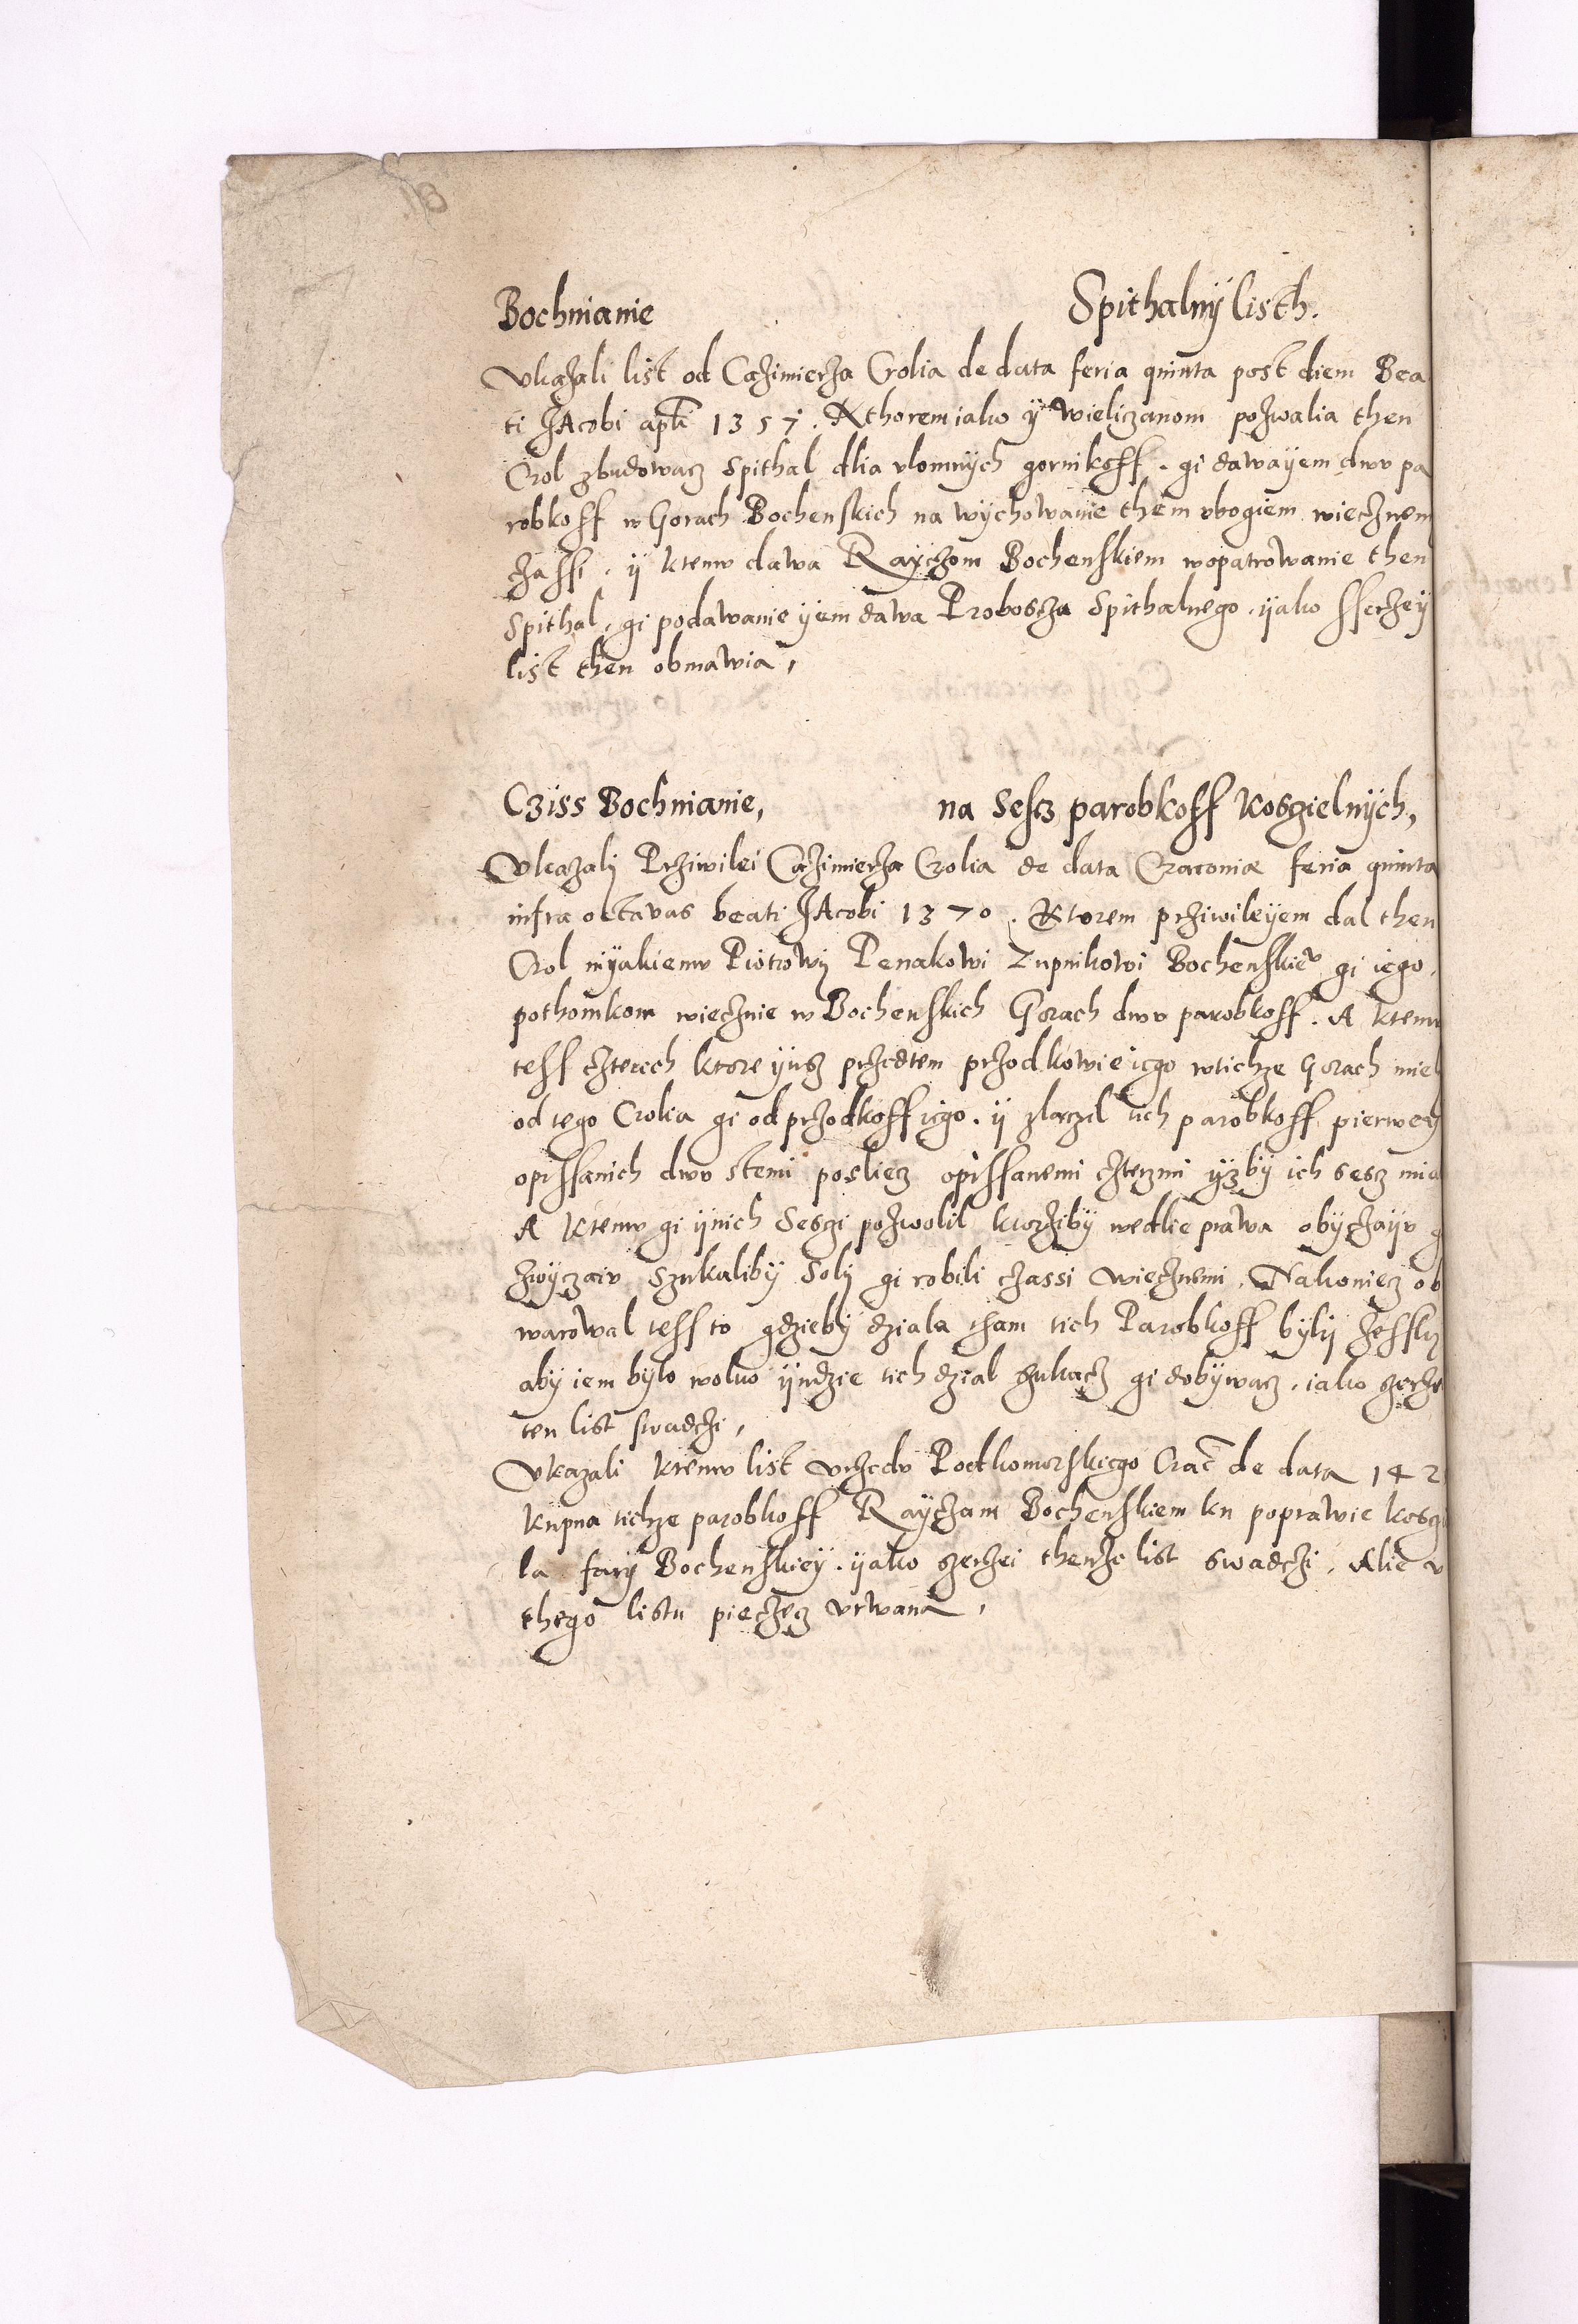 Bochnianie Spithalny listh.
Vkazali list od Cazimierza Crolia de data feria quinta post diem Bea
ti JAcobi apli 1357. Kthorem iako ÿ wieliczanom pozwalia then
Crol zbudowacz Spithal dlia vlomnÿch gornikoff. gi dawaÿem dwv pa
robkoff w Gorach Bochenskich na wÿchowanie them vbogiem wiecznem
czassi. ÿ ktemv dawa Raÿczom Bochenskiem wopatrowanie then
Spithal, gi podawanie ÿem dawa Proboscza Spithalnego. ÿako sserzeÿ
list then obmawia,
Cziss Bochnianie, na Sescz parobkoff Kosgielnÿch,
Vkazalÿ Prziwilei Cazimierza Crolia de data Cracoviæ feria quinta
infra octavas beati JAcobi 1370. Ktorem prziwileÿem dal then
Crol niÿakiemv Piotrowÿ Penakowi Zupnikowi Bochenskiev gi iego
pothomkom wiecznie w Bochenskich Gorach dwv parobkoff. A ktemv
tess czterech ktore ÿusz przedtem przodkowie iego wtichze Gorach miel
od tego Crolia gi od przodkoff iego. ÿ zlaczil tich parobkoff pierweÿ
opissanich dwv stemi posliecz opissanemi czterzmi ÿzbÿ ich sesz mie
A ktemv gi ÿnich Seszi pozwolil ktorzibÿ wedlie prawa obÿczaÿv g
zwÿczaiv szukalibÿ Solÿ gi robili czassi wiecznemi. Nakoniecz ob
warowal tess to gdziebÿ dziala tham tich Parobkoff bÿlÿ zesslÿ
abÿ iem bÿlo wolno ÿndzie tich dzial szukacz gi dobÿwacz, iako szerze
ten list swadczi,
Vkazali ktemv list vrzedv Podkomorskiego Crac de data 142
kupna tichze parobkoff Raÿczam Bochenskiem ku poprawie kosgi
la farÿ Bochenskieÿ. ÿako szerzei thenze list swadczi. Alie v
thego listu pieczecz vrwana,